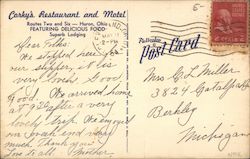 Corky's Restaurant and Motel
Routes Two and Six — Huron, Ohio
FEATURING DELICIOUS FOOD
Superb Lodging
Post Card
Dear Folks:
We stopped here for
our supper, it is
very lovely. Good
food. We arrived home
at 7 P.M. after a very
lovely trip. We enjoyed
our and very
much. Thank you
one to all. Mother
Mrs C L Miller
3824
Berkley
Michigan